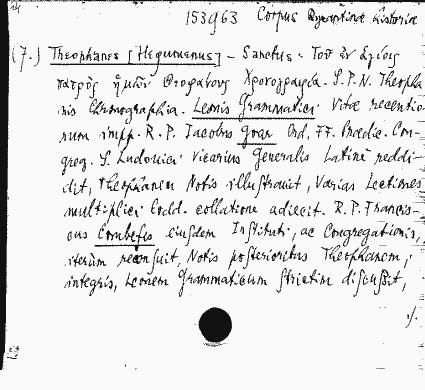 153963 Corpus Byzantinae historiae
(7.) Theophanes [Hegumenus] – Sanctus. Τοῦ ἐν ἁγίοις
πατρὸς ἡμῶν Θεοφάνους Χρονογραφία. S.P.N. Theopha
nis Chronographia. Leonis Grammatici Vitae recentio
rum impp. R. P. Iacobus Goar Ord. FF. Praedic. Con-
greg. S. Ludovici Vicarius Generalis Latinè reddi-
dit, Theophanem Notis illustravit, Varias Lectiones
multiplici Codd. collatione adiecit. R.P. Francis-
cus Combefis eiusdem Instituti, ac Congregationis,
iterùm recensuit, Notis posterioribus Theophanem,
integris, Leonem Grammaticum strictim discussit,